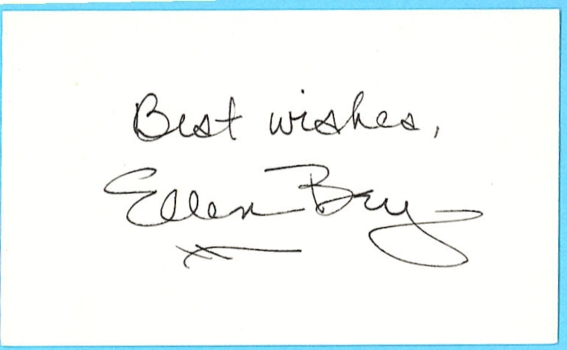 Best wishes,
Ellen Bry